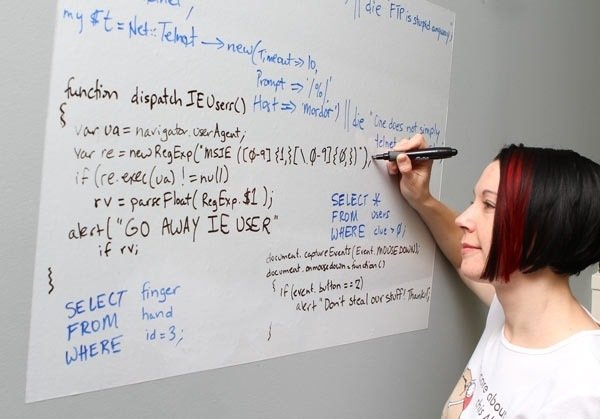 || die "FTP is stupid anyway";
my $t = Net::Telnet -> new(Timeout => 10,
Prompt => '/%/',
Host => 'mordor') || die "One does not simply
telnet
function dispatchIEUserr()
{
var ua = navigator.userAgent;
var re = new RegExp("MSIE ([0-9]{1,}[\.0-9]{0,})"),
if (re.exec(ua) != null)
rv = parseFloat( RegExp.$1 );
alert("GO AWAY IE USER"
if rv;
}
SELECT *
FROM users
WHERE clue > 0;
document.captureEvents(Event.MOUSEDOWN);
document.onmousedown = function()
{ if (event.button == 2)
alert "Don't steal our stuff! Thanks!";
}
SELECT finger
FROM hand
WHERE id=3;